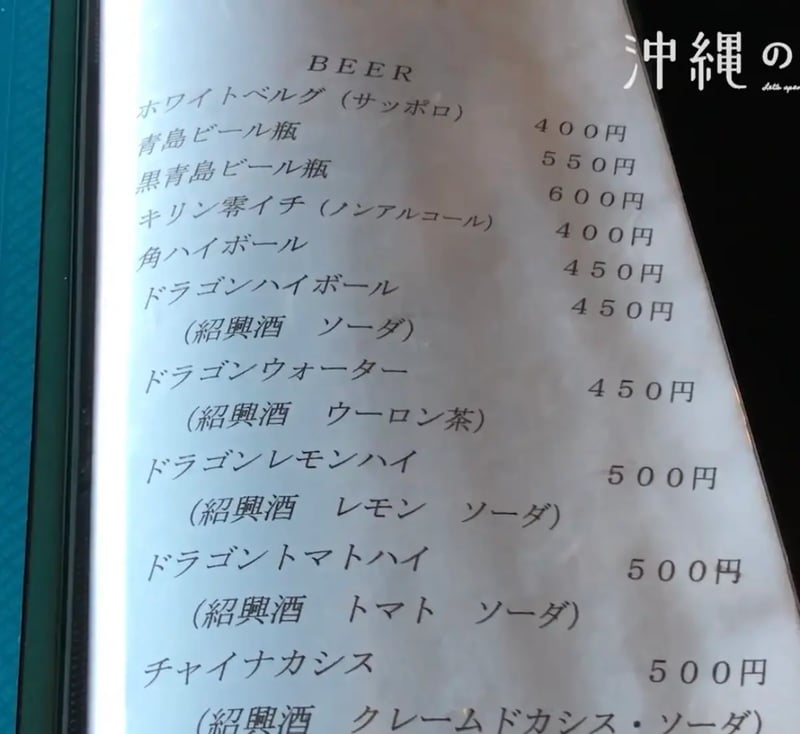 沖縄の
BEER
ホワイトベルグ（サッポロ） 400円
青島ビール瓶 550円
黒青島ビール瓶 600円
キリン零イチ（ノンアルコール） 400円
角ハイボール 450円
ドラゴンハイボール 450円
（紹興酒　ソーダ）
ドラゴンウォーター 450円
（紹興酒　ウーロン茶）
ドラゴンレモンハイ 500円
（紹興酒　レモン　ソーダ）
ドラゴントマトハイ 500円
（紹興酒　トマト　ソーダ）
チャイナカシス 500円
（紹興酒　クレームドカシス・ソーダ）